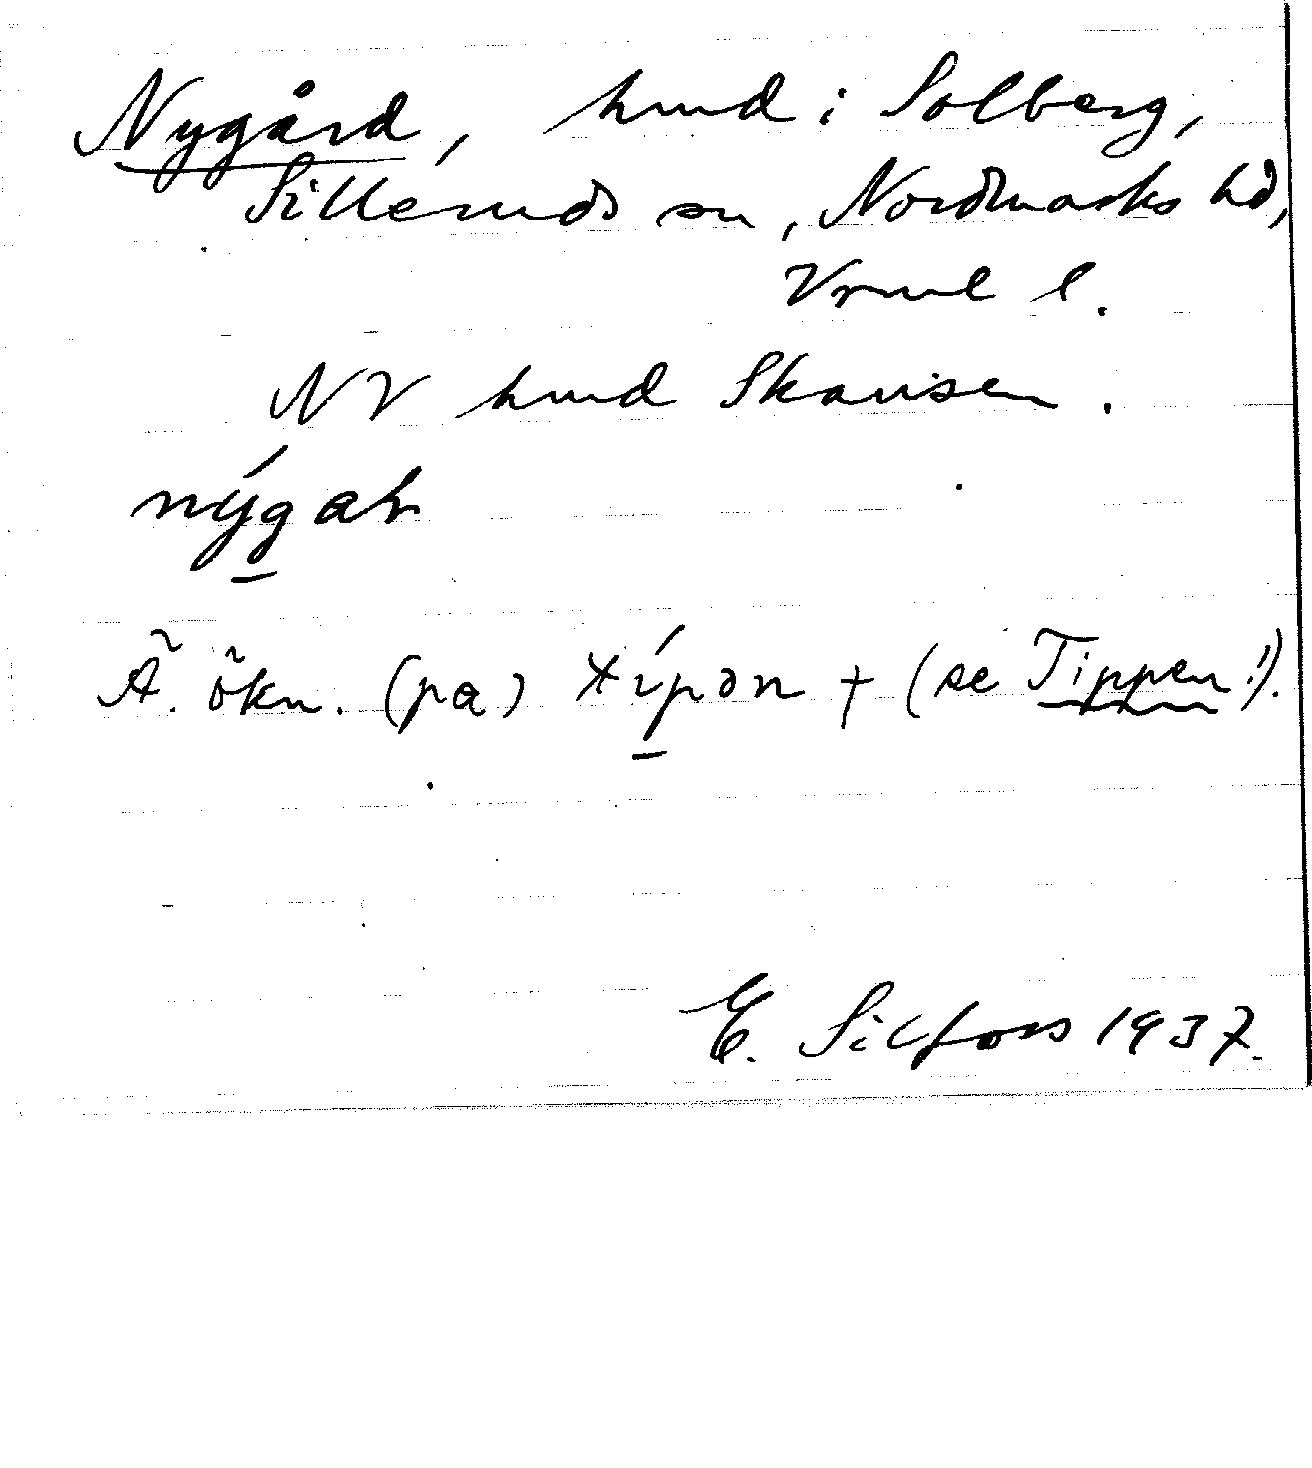 Nygård, hmd i Solberg,
Silleruds sn, Nordmarks hd,
Vrml l.
NV hmd Skansen.
nýgaɽ
Ä. ökn. (pa) típən † (se Tippen!).
E. Silfors 1937.